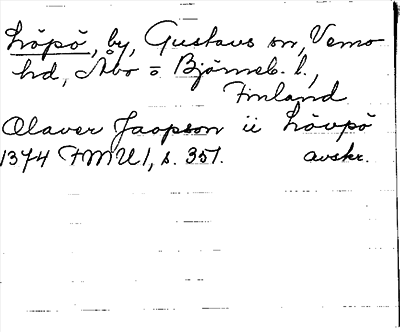 Löpö, by, Gustavs sn, Vemo
hd, Åbo o. Björneb. l.,
Finland
Olaver Jaopson ii Lövpö
1374 FMU 1, s. 351. avskr.